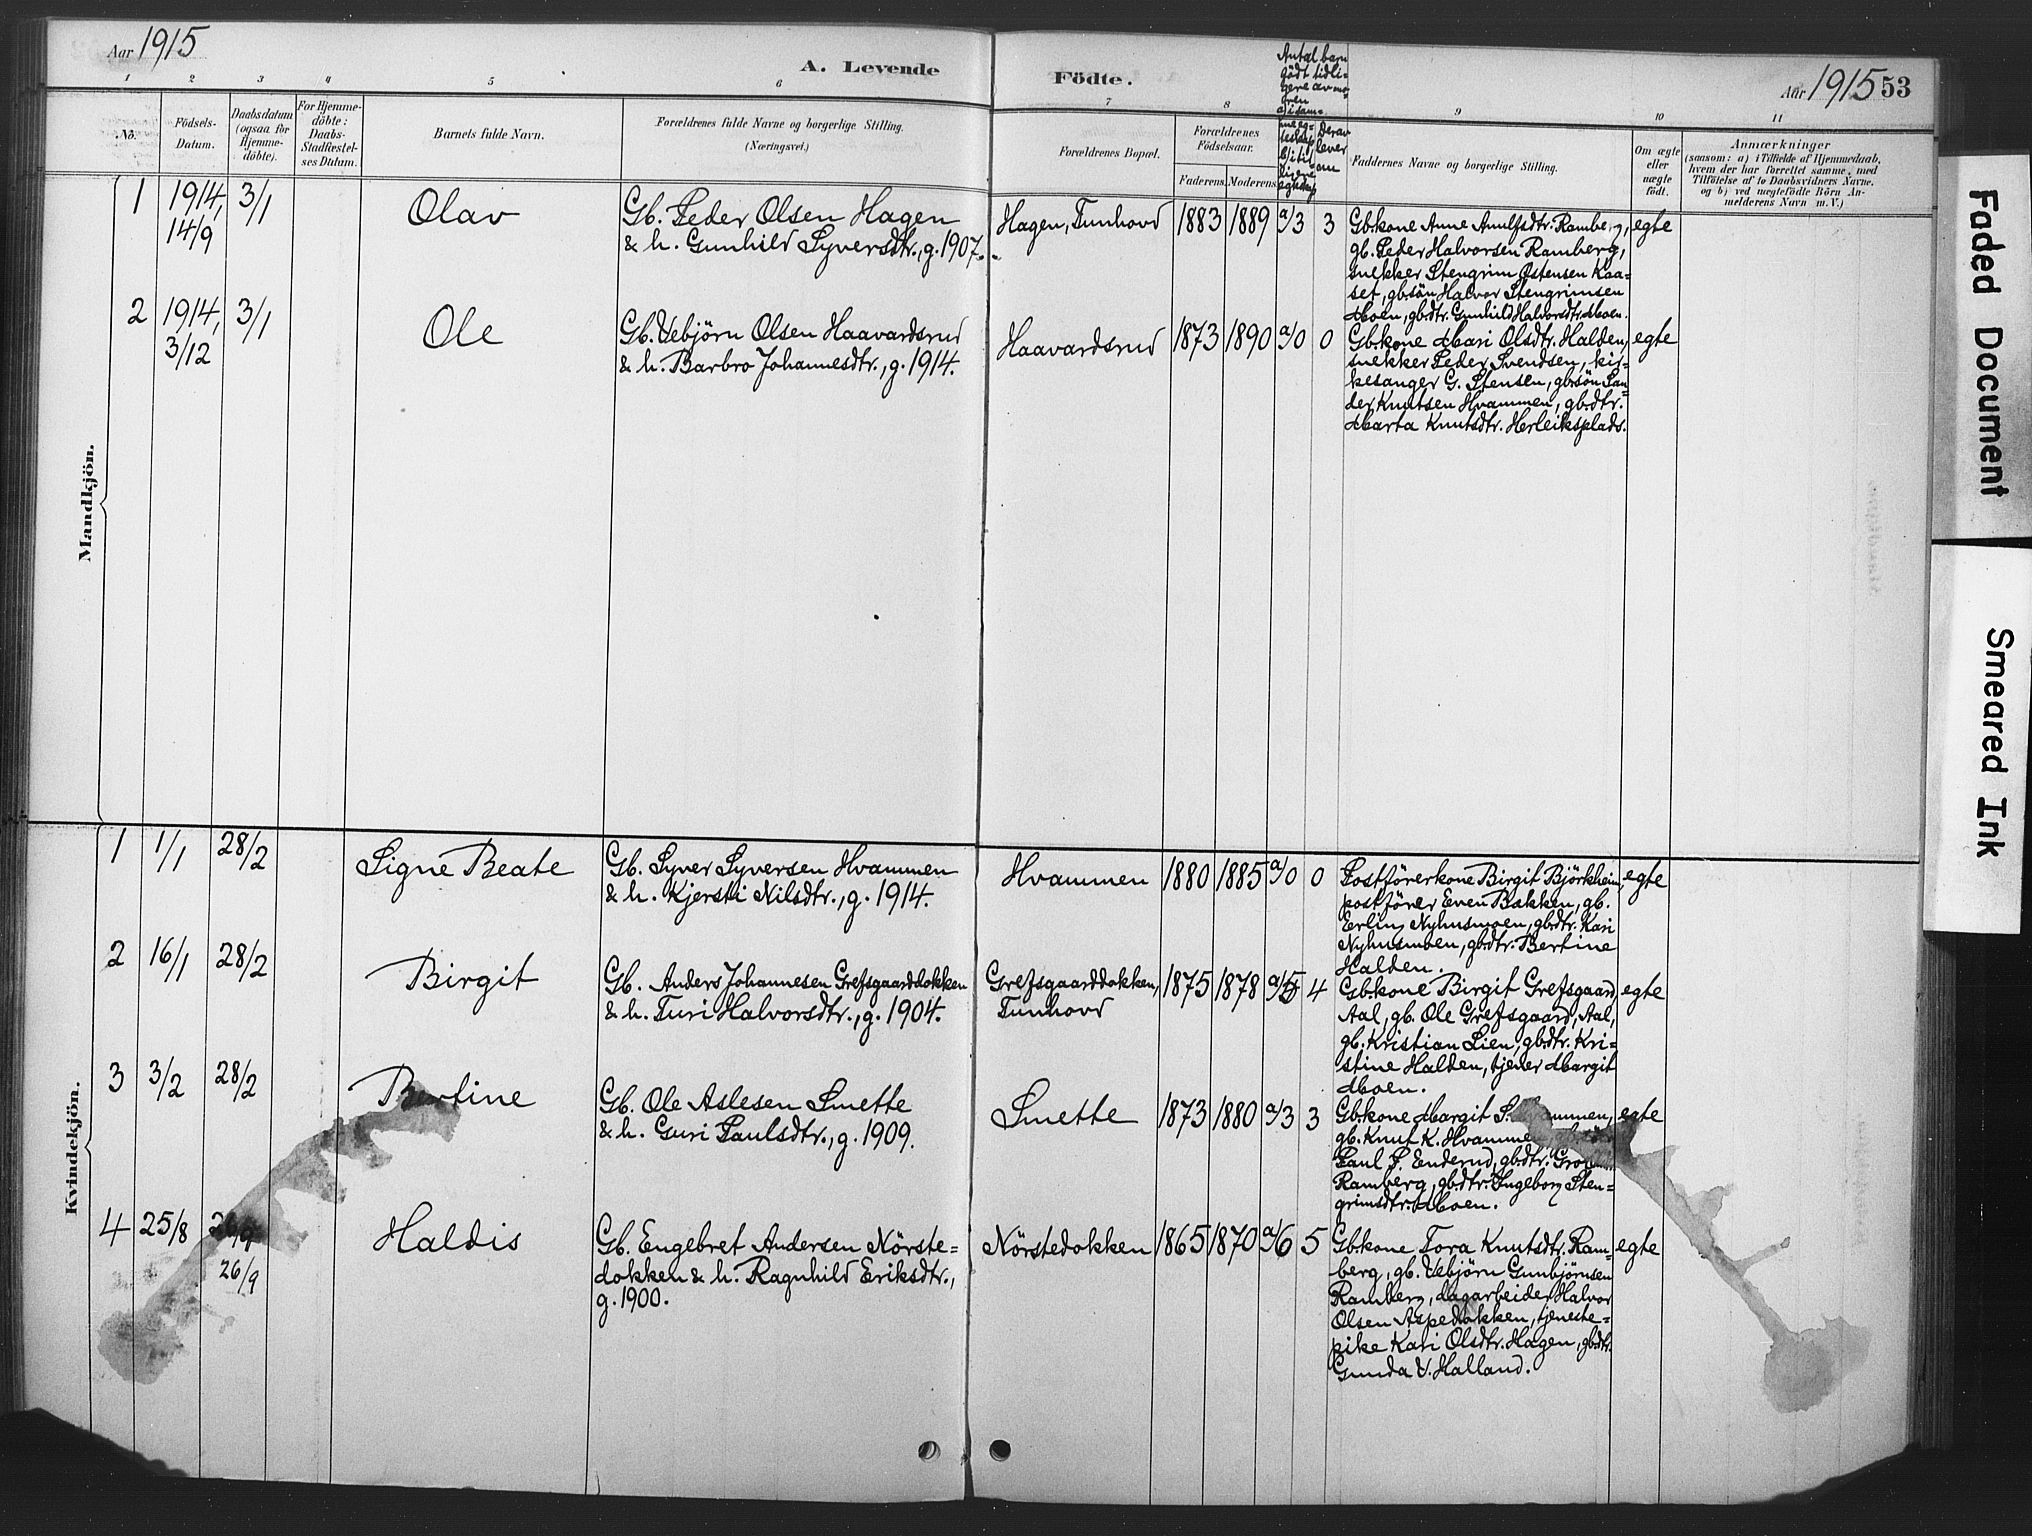 Aar 1915
A. Levende
Födte.
Antal barn
födt tidli-
gere av mo-
ren
a) i sam-
me eg-
teskap
b) i tid-
ligere
egteskap
Derav
lever
om
Aar 1915 53
1 2 3 4 5 6 7 8 9 10 11
No.
Födsels-
Datum.
Daabsdatum
(ogsaa for
Hjemme-
döbte).
For Hjemme-
döbte:
Daabs-
Stadfæstel-
ses Datum.
Barnets fulde Navn.
Forældrenes fulde Navne og borgerlige Stilling.
(Næringsvei.)
Forældrenes Bopæl.
Forældrenes
Födselsaar.
Faderens. Moderens.
Faddernes Navne og borgerlige Stilling.
Om ægte
eller
uægte
födt.
Anmærkninger
(saasom: a) i Tilfælde af Hjemmedaab,
hvem der har forrettet samme, med
Tilföielse af to Daabsvidners Navne,
og b) ved uægtefödte Börn An-
melderens Navn m. V.)
Mandkjön.
1
1914,
14/9
3/1
Olav
Gb. Peder Olsen Hagen
& h. Gunhild Syversdtr., g. 1907.
Hagen, Tunhovd
1883 1889 a/3 3
Gb.kone Anne Arnulfsdtr. Ramberg,
gb. Peder Halvorsen Ramberg,
snekker Stengrim Østensen Kaa-
set, gb.sön Halvor Stengrimsen
Moen, gb.dtr. Gunhild Halvorsdtr. Moen.
egte
2
1914,
3/12
3/1
Ole
Gb. Vebjörn Olsen Haavardsrud
& h. Barbro Johannesdtr., g. 1914.
Haavardsrud
1873 1890 a/0 0
Gb.kone Mari Olsdtr. Halden,
snekker Peder Svendsen, kir-
kesanger G. Stensen, gb.sön San-
der Knutsen Hvammen, gb.dtr.
Marta Knutsdtr. Herleiksplads.
egte
Kvindekjön.
1
1/1
28/2
Signe Beate
Gb. Syver Syversen Hvammen
& h. Kjersti Nilsdtr., g. 1914.
Hvammen
1880 1885 a/0 0
Postförerkone Birgit Björkheim,
postförer Even Bakken, gb.
Erling Nyhusmoen, gb.dtr. Kari
Nyhusmoen, gb.dtr. Bertine
Halden.
egte
2
16/1
28/2
Birgit
Gb. Anders Johannesen Grefsgaarddokken
& h. Turi Halvorsdtr., g. 1904.
Grefsgaarddokken,
Tunhovd
1875 1878 a/5 4
Gb.kone Birgit Grefsgaard,
Aal, gb. Ole Grefsgaard, Aal,
gb. Kristian Lien, gb.dtr. Kri-
stine Halden, tjener Margit
Moen.
egte
3
3/2
28/2
Bertine
Gb. Ole Aslesen Smette
& h. Guri Paulsdtr., g. 1909.
Smette
1873 1880 a/3 3
Gb.kone Margit
gb. Knut K.
Paul P. Enderud, gb.dtr. Gro
Ramberg, gb.dtr. Ingeborg Sten-
grimsdtr. Moen.
egte
4
25/8
26/9
26/9
Haldis
Gb. Engebret Andersen Nörste-
dokken & h. Ragnhild Eriksdtr.,
g. 1900.
Nörstedokken
1865 1870 a/6 5
Gb.kone Tora Knutsdtr. Ram-
berg, gb. Vebjörn Gunbjörnsen
Ramberg, dagarbeider Halvor
Olsen Aspedokken, tjeneste-
pike Kari Olsdtr. Hagen, gb.dtr.
Gunda V. Halland.
egte
Faded Document
Smeared Ink